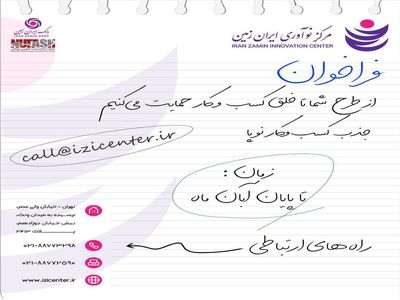 مرکز نوآوری ایران زمین
IRAN ZAMIN INNOVATION CENTER
بانک ایران زمین
IRAN ZAMIN BANK
فراخوان
از طرح شما تا خلق کسب و کار حمایت می‌کنیم
جذب کسب و کار نوپا
call@izicenter.ir
زمان :
تا پایان آبان ماه
راه های ارتباطی :
تهران - خیابان ولی عصر،
نرسیده به میدان ونک،
نبش خیابان دوازدهم،
پلاک ۲۴۱۳
۰۲۱-۸۸۶۷۳۲۹۸
۰۲۱-۸۸۶۷۲۵۹۰
www.izicenter.ir